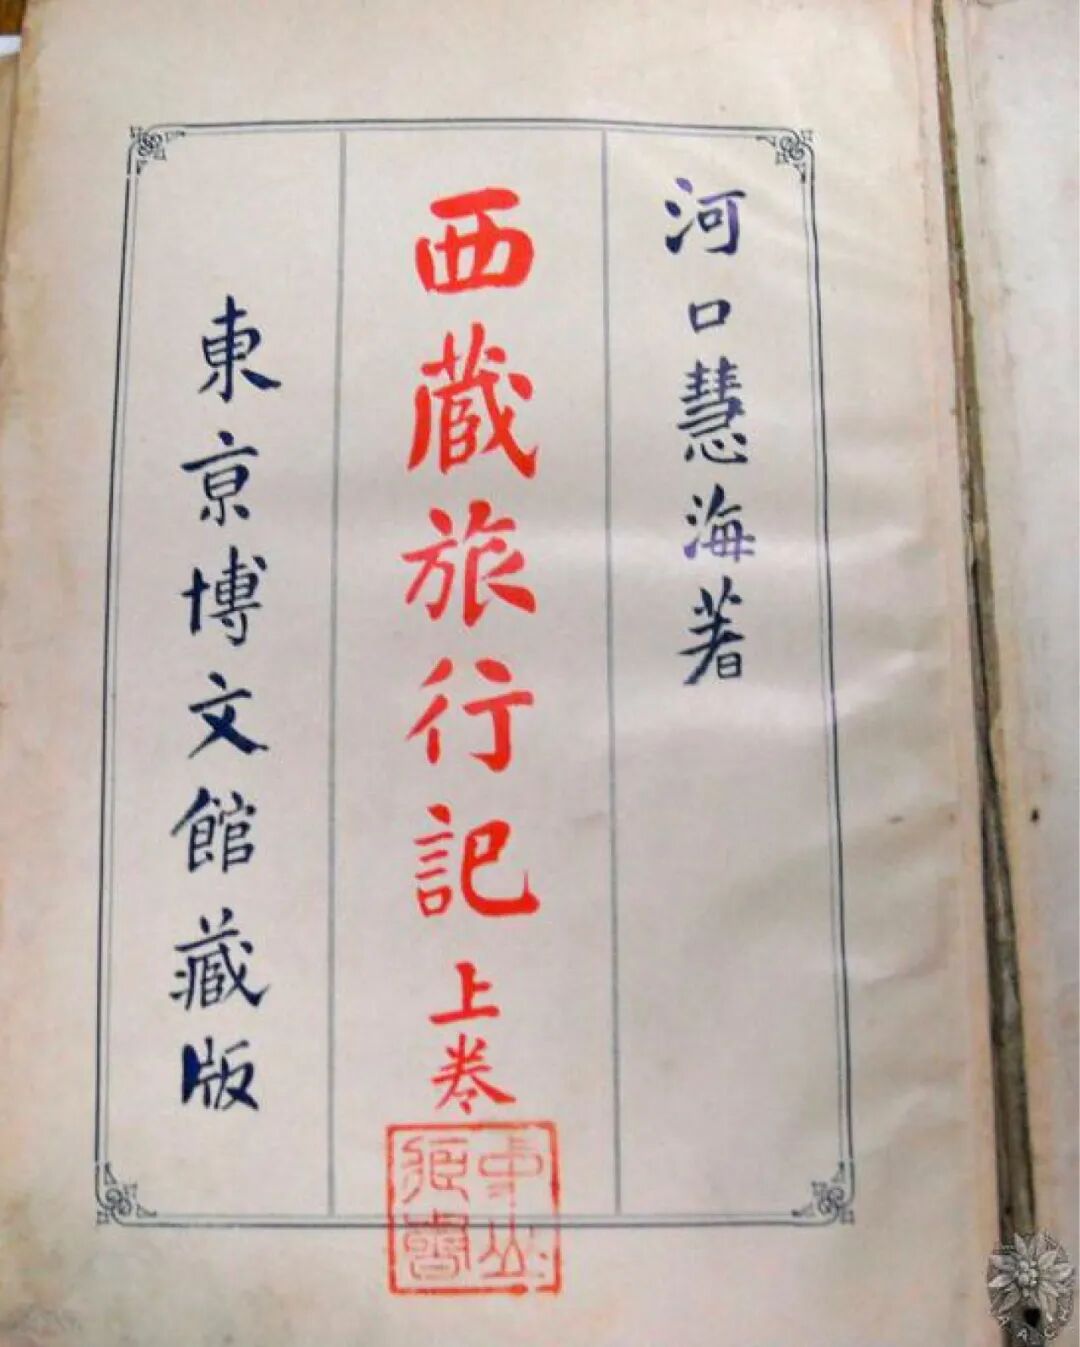 河口慧海著
西藏旅行記上卷
東京博文館藏版